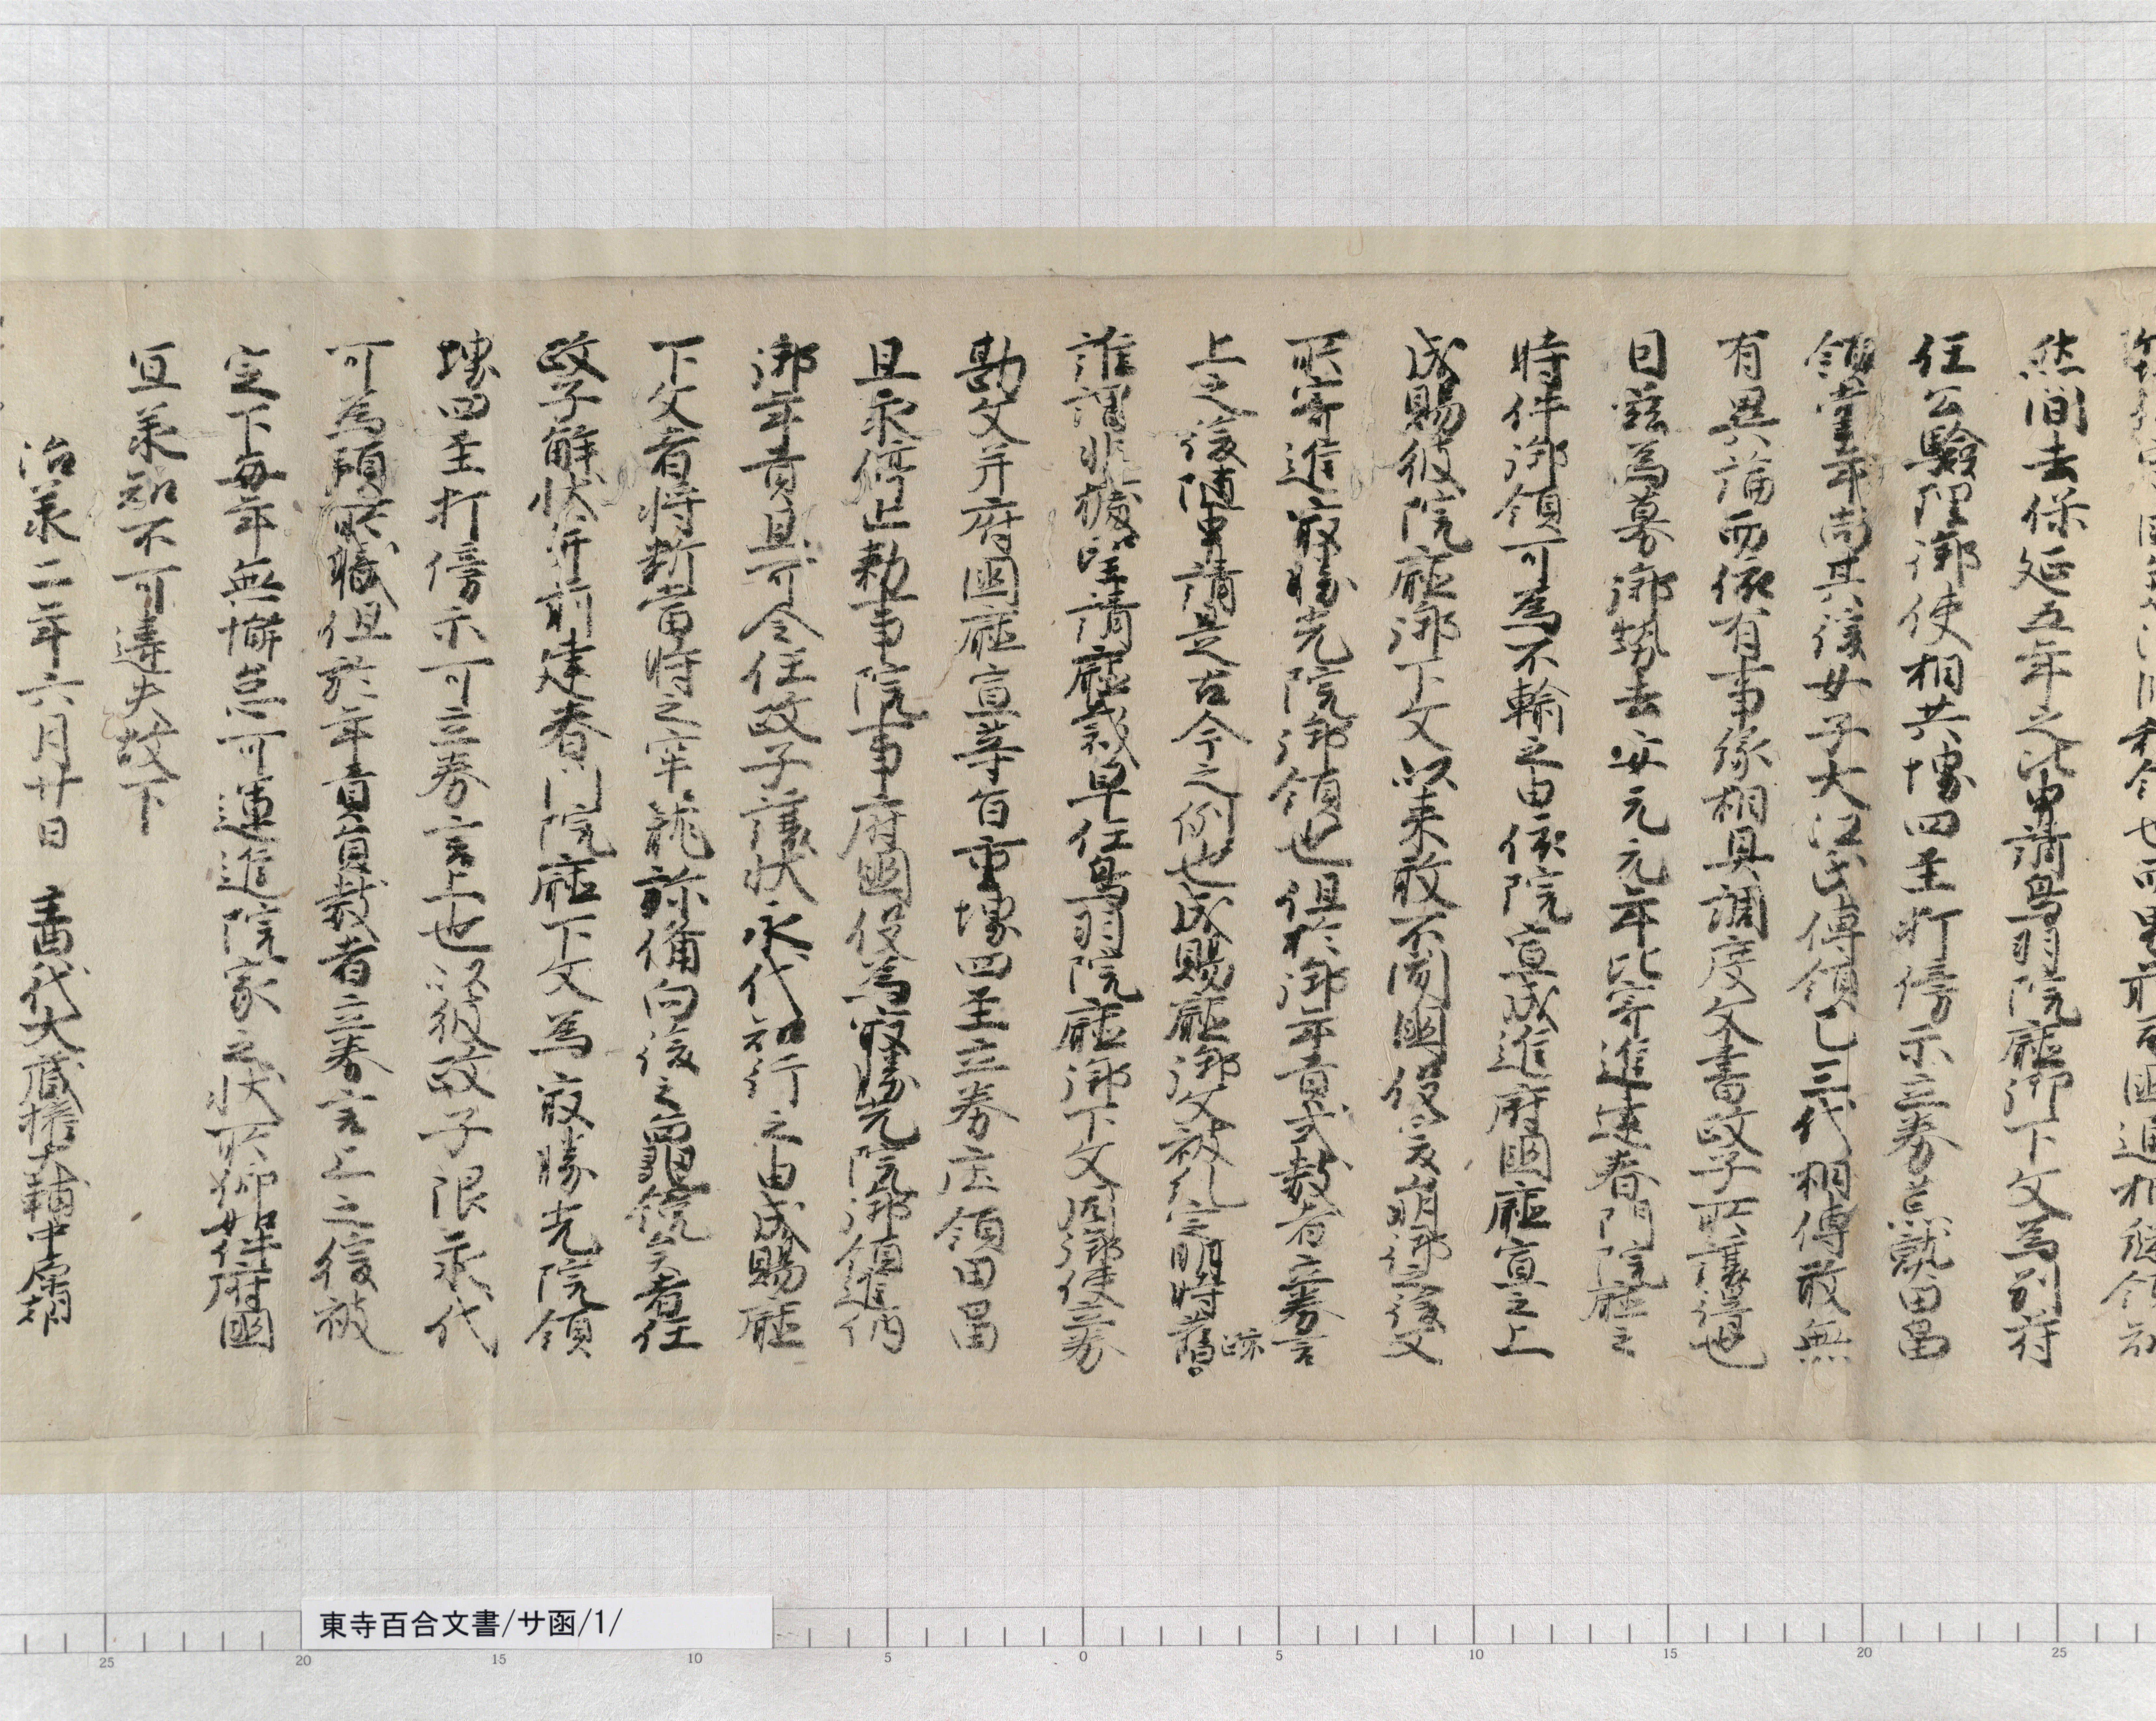 然間去保延五年之比申請鳥羽院庁御下文為別符
任公験理御使相共堺四至打傍示立券荒熟田畠
領掌年尚其後女子大江氏傳領已三代相傳敢無
有異論而依有事縁相具調度文書政子所讓得也
因茲為募御勢去安元元年比寄進建春門院庁之
時件御領可為不輸之由依院宣成進府國庁宣之上
成賜彼院庁御下文以来敢不聞國役爰崩御之後又
所寄進最勝光院御領也但於御年貢式数者立券言
上之後随申請是古今之例也成賜庁御下文被糺定明時者
誰謂非據望請庁裁早任鳥羽院庁御下文同御使立券
勘文并府國庁宣等旨重堺四至立券庄領田畠
且永停止勅事院事府國役為最勝光院御領進納
御年貢且可令任政子讓状永代知行之由成賜庁
下文者将断當時之牢籠弥備向後之龜鏡矣者任
政子解状并前建春門院庁下文為最勝光院領
堺四至打傍示可立券言上也以彼政子限永代
可為預所職但於年貢員数者立券言上之後被
定下毎年無懈怠可運進院家之状所仰如件府國
宜承知不可違失故下
治承二年六月廿日 主典代大蔵権大輔中原朝
東寺百合文書/サ函/1/
25 20 15 10 5 0 5 10 15 20 25